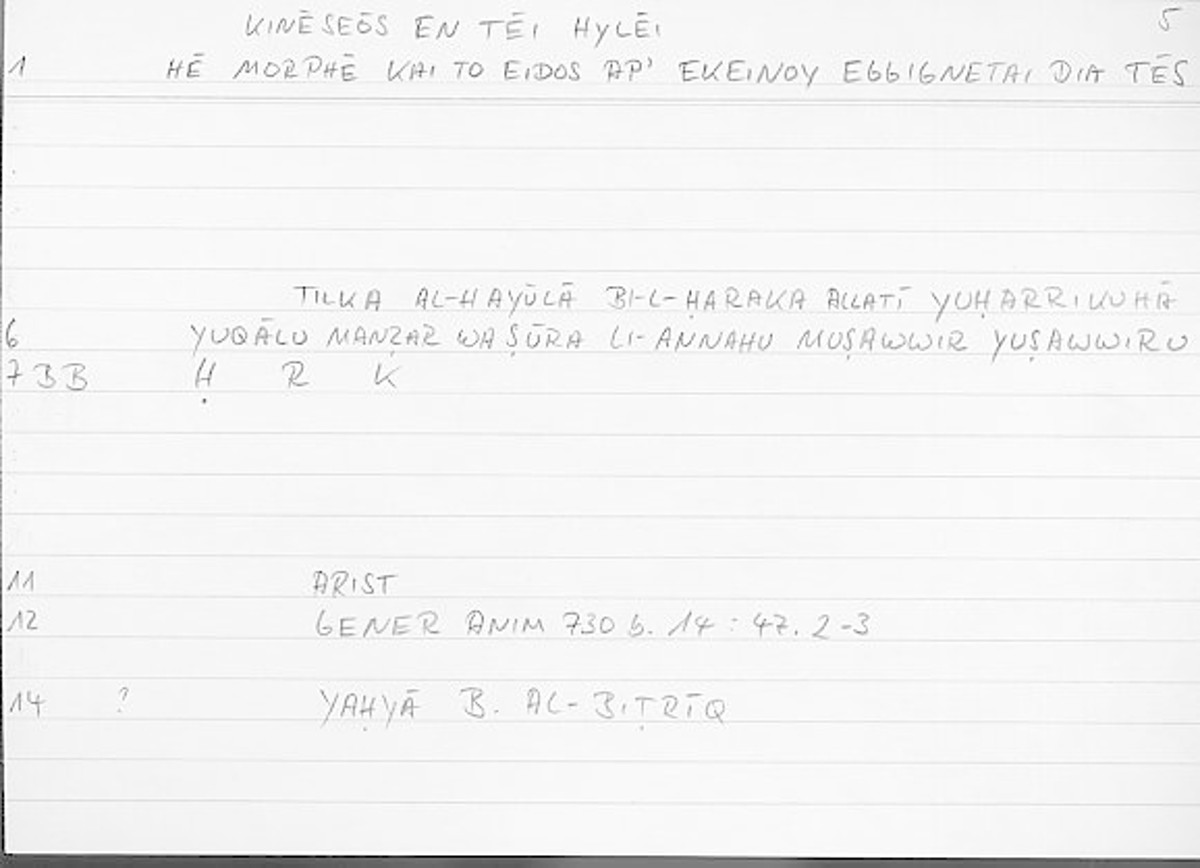 KINĒSEŌS EN TĒI HYLĒI 5
1 HĒ MORPHĒ KAI TO EIDOS AP' EKEINOY EGGIGNETAI DIA TĒS
TILKA AL-HAYŪLĀ BI-L-ḤARAKA ALLATĪ YUḤARRIKUHĀ
6 YUQĀLU MANẒAR WA ṢŪRA LI-ANNAHU MUṢAWWIR YUṢAWWIRU
7 BB Ḥ R K
11 ARIST
12 GENER ANIM 730 b. 14 : 47. 2-3
14 ? YAḤYĀ B. AL-BIṬRĪQ